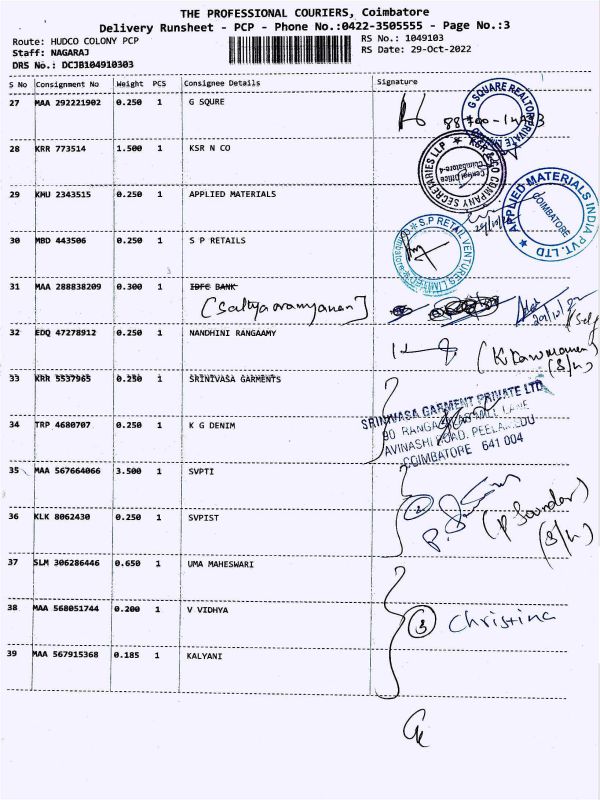 THE PROFESSIONAL COURIERS, Coimbatore
Delivery Runsheet - PCP - Phone No.:0422-3505555 - Page No.:3
Route: HUDCO COLONY PCP
RS No.: 1049103
Staff: NAGARAJ
RS Date: 29-Oct-2022
DRS No.: DCJB104910303
S No Consignment No Weight PCS Consignee Details Signature
27 MAA 292221902 0.250 1 G SQURE
G SQUARE REALTORS PRIVATE
28 KRR 773514 1.500 1 KSR N CO
KSR & CO COMPANY SECRETARIES LLP
Central Office
Coimbatore-4
29 KMU 2343515 0.250 1 APPLIED MATERIALS
APPLIED MATERIALS INDIA PVT. LTD
COIMBATORE
30 MBD 443506 0.250 1 S P RETAILS
S.P RETAIL VENTURES LIMITED
Coimbatore
31 MAA 288838209 0.300 1 IDFC BANK
32 EDQ 47278912 0.250 1 NANDHINI RANGAAMY
(S/n)
33 KRR 5537965 0.250 1 SRINIVASA GARMENTS
SRINIVASA GARMENT PRIVATE LTD
90 MILL LANE
AVINASHI ROAD, PEELAMEDU
COIMBATORE 641 004
34 TRP 4680707 0.250 1 K G DENIM
35 MAA 567664066 3.500 1 SVPTI
2
36 KLK 8062430 0.250 1 SVPIST
(S/n)
37 SLM 306286446 0.650 1 UMA MAHESWARI
38 MAA 568051744 0.200 1 V VIDHYA
3 Christina
39 MAA 567915368 0.185 1 KALYANI